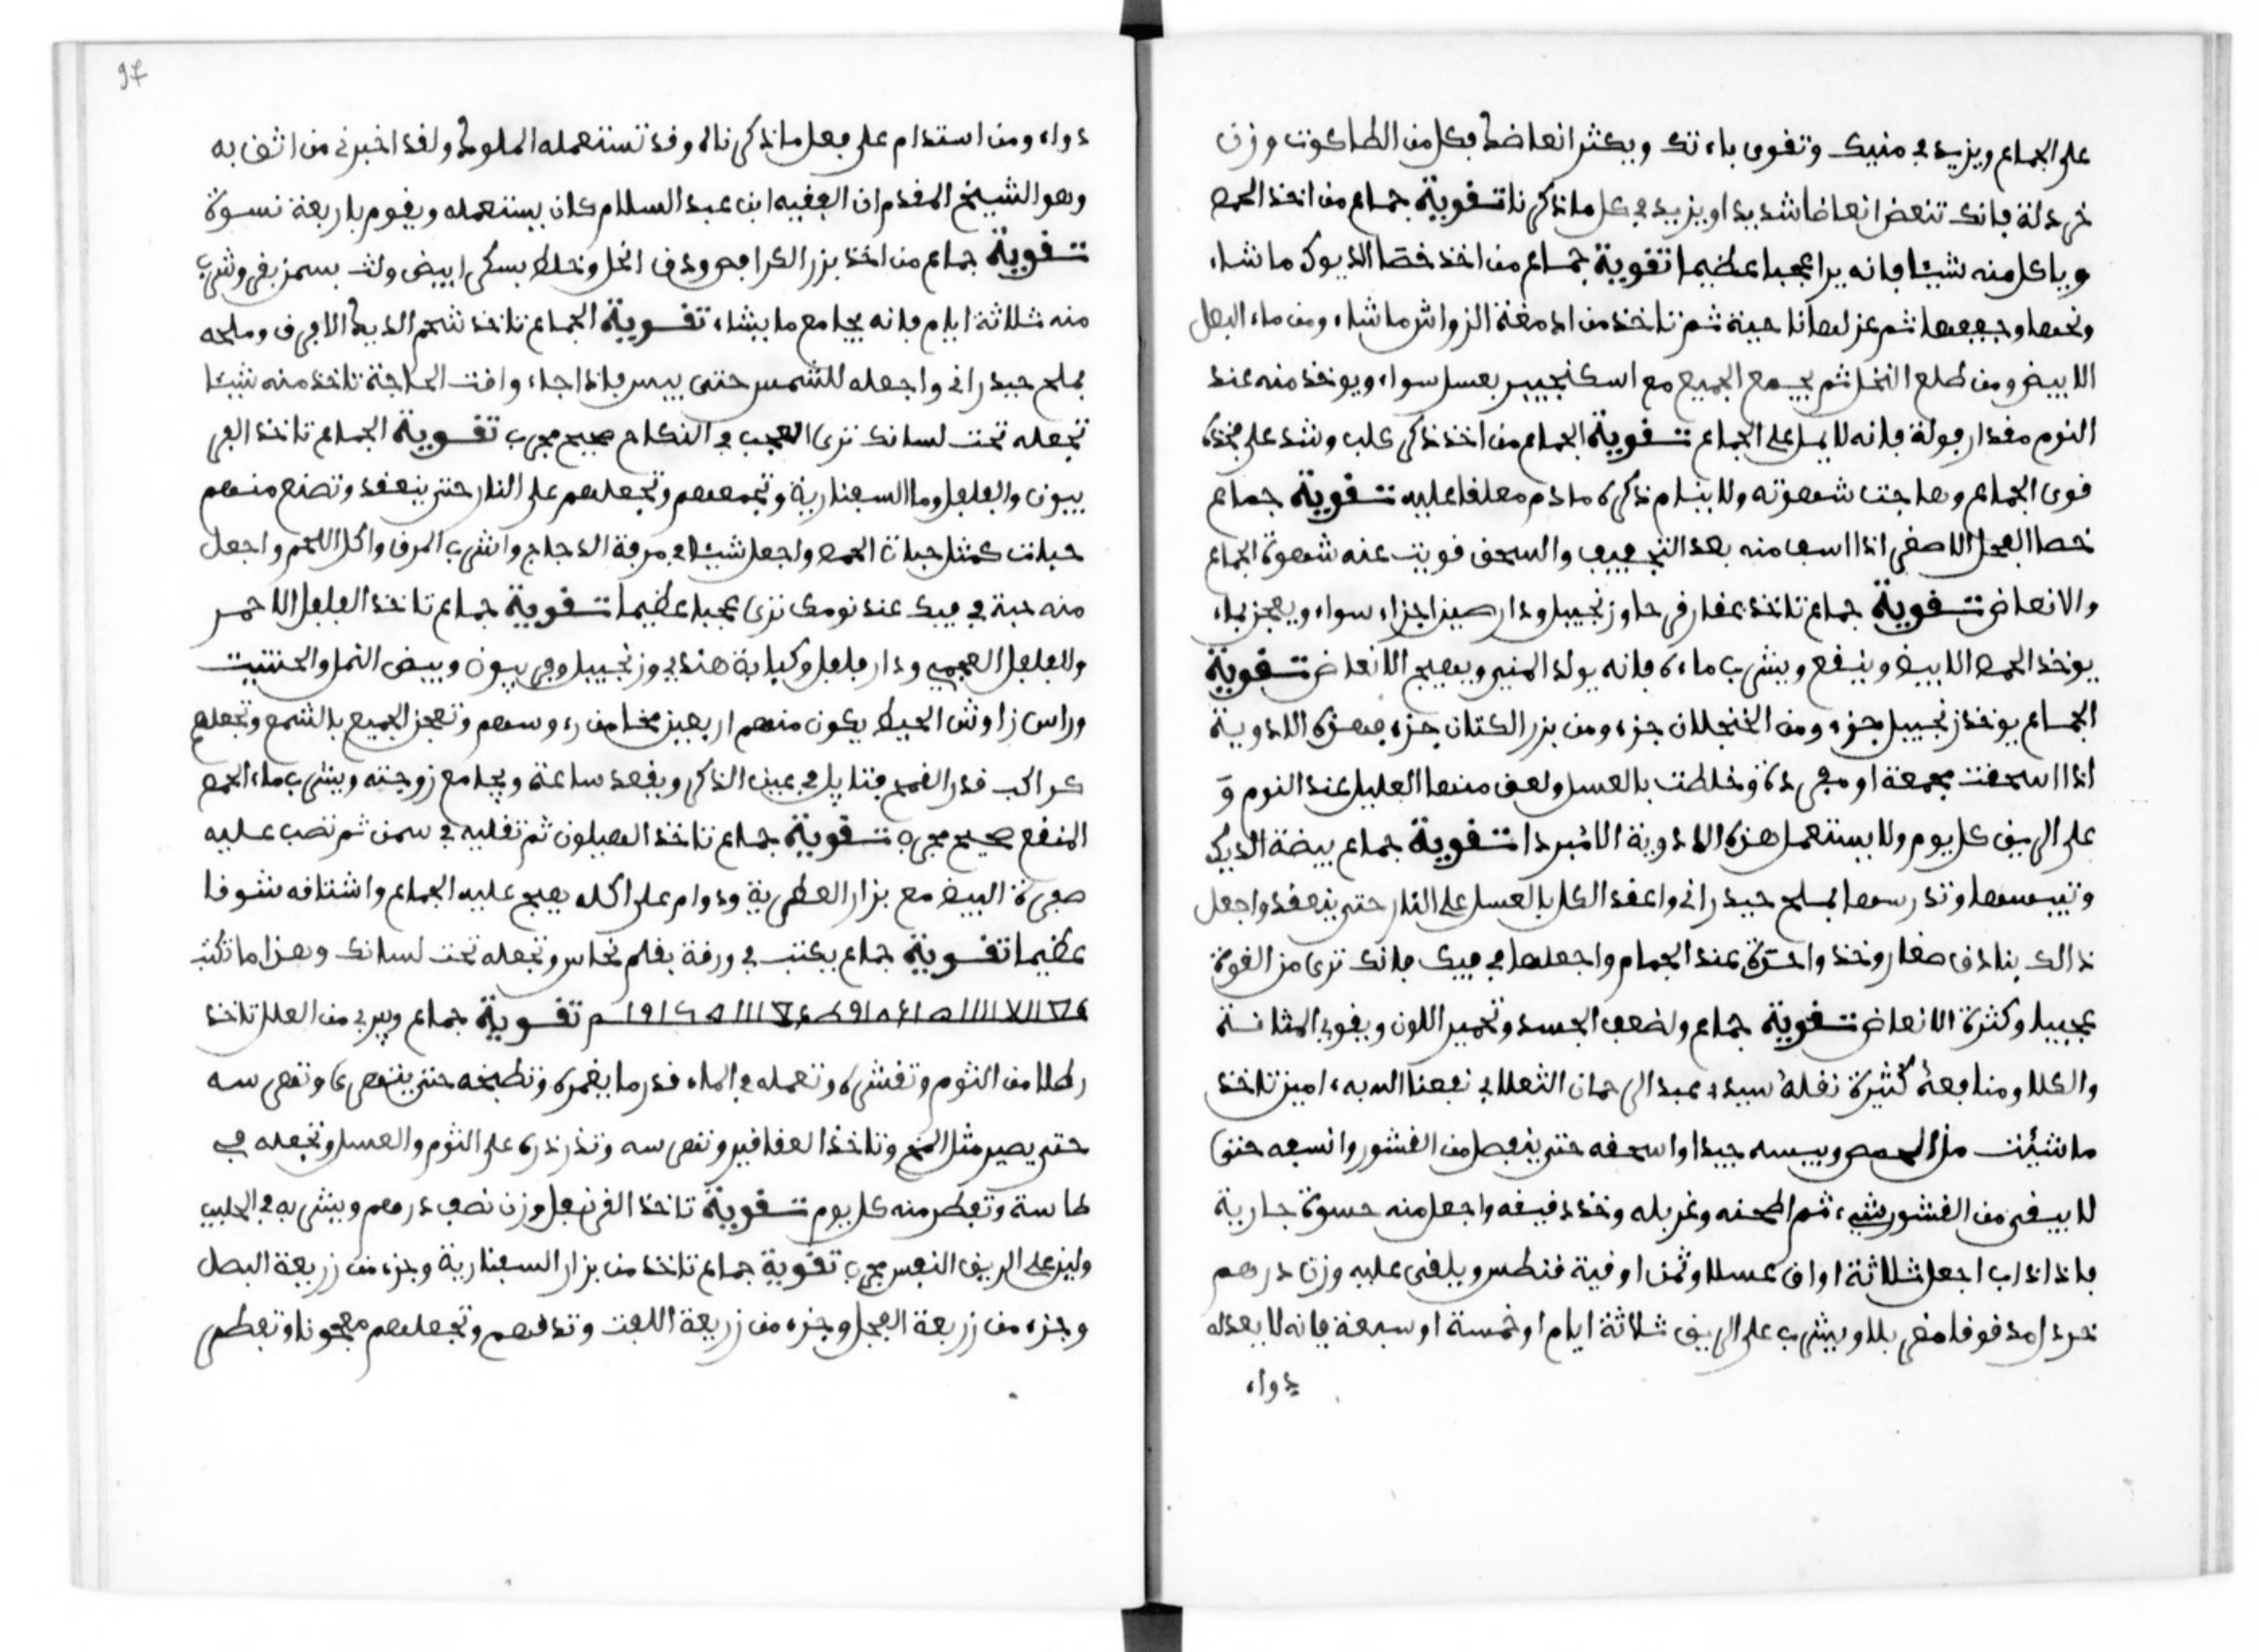 على الجماع ويزيد في منيك وتقوى باءتك ويكثر انعاضك فكل من الطاكوت وزن
خردلة فانك تنعض انعاضا شديدا ويزيد في كل ما ذكرنا تقوية جماع من اخذ الحمص
وياكل منه شيئا فانه يرا عجبا عظيما تقوية جماع من اخذ خصا الديوك ما شاء
ونحبها وجففها ثم عزلها ناحية ثم تاخذ من ادمغة الزواش ما شاء ومن ماء البصل
الابيض ومن طلع النخل ثم يجمع الجميع مع اسكنجبير بعسل سواء ويوخذ منه عند
النوم مقدار فولة فانه لا يمل على الجماع تقوية الجماع من اخذ ذكر كلب وشد على فخذه
قوى الجماع وهاجت شهوته ولا ينام ذكره ما دم معلقا عليه تقوية جماع
خصا العجل الاصفر اذا اسف منه بعد التجفيف والسحق قويت عنه شهوة الجماع
والانعاض تقوية جماع تاخذ عقار قرحا وزنجبيل ودار صين اجزاء سواء ويعجن بماء
يوخذ الحمص الابيض وينقع ويشرب ماءه فانه يولد المني ويهيج الانعاض تقوية
الجماع يوخذ زنجبيل جزء ومن الخنجلان جزء ومن بزر الكتان جزء فهذه الادوية
اذا اسحقت مجمعة او مفردة وخلطت بالعسل ولعق منها العليل عند النوم و
على الريق كل يوم ولا يستعمل هذه الادوية الا مبردا تقوية جماع بيضة الديك
وتيبسها وتدرسها بملح حيدراني واعقد الكل بالعسل على النار حتى ينعقد واجعل
ذالك بنادق صغار وخذ واحدة عند الجماع واجعلها في فيك فانك ترى من القوة
عجيبا وكثرة الانعاض تقوية جماع ولضعف الجسد وتحمير اللون ويقوي المثانة
والكلا ومنافعه كثيرة نقله سيدي عبد الرحمان الثعلابي نفعنا الله به امين تاخذ
ما شئت من الحمص ويبسه جيدا واسحقه حتى ينفصل من القشور وانسفه حتى
لا يبقى من القشور شيء ثم اطحنه وغربله وخذ دقيقه واجعل منه حسوة جارية
فاذا ذاب اجعل ثلاثة اواق عسلا وثمن اوقية قنطس ويلقى عليه وزن درهم
خردل مدقوقا مغربلا ويشرب على الريق ثلاثة ايام او خمسة او سبعة فانه لا يعدله
دواء
97
دواء ومن استدام على فعل ما ذكرناه وقد تستعمله الملوك ولقد اخبرني من اثق به
وهو الشيخ المقدم ان الفقيه ابن عبد السلام كان يستعمله ويقوم باربعة نسوة
تقوية جماع من اخذ بزر الكرافص ودق انحل وخلط بسكر ابيض ولت بسمن بقر وشرب
منه ثلاثة ايام فانه يجامع ما يشاء تقوية الجماع تاخذ شحم الديك الافرق وملحه
بملح حيدراني واجعله للشمس حتى ييبس فاذا جاء وافت الحاجة تاخذ منه شيئا
تجعله تحت لسانك ترى العجب في النكاح صحيح مجرب تقوية الجماع تاخذ الفر
بيون والفلفل وما السفنارية وتجمعهم وتجعلهم على النار حتى ينعقد وتصنع منهم
حبات كمثل حبات الحمص واجعل شيئا في مرقة الدجاج واشرب المرق واكل اللحم واجعل
منه حبة في فيك عند نومك ترى عجبا عظيما تقوية جماع تاخذ الفلفل الاحمر
والفلفل العجمي ودار فلفل وكبابة هندي وزنجبيل وفربيون وبيض النمل والحنتيت
وراس زاوش الحيط يكون منهم اربعين مخا من رءوسهم وتعجن الجميع بالشمع وتجعلهم
كرالحب قدر القمح فتايل في عين الذكر ويقعد ساعة ويجامع زوجته ويشرب ماء الحمص
المنقع صحيح مجرب تقوية جماع تاخذ الهيلون ثم تقليه في سمن ثم تصب عليه
صفرة البيض مع بزار العطرية ودوام على اكله يهيج عليه الجماع واشتاقه شوقا
عظيما تقوية جماع يكتب في ورقة بقلم نحاس وتجعله تحت لسانك وهذا ما تكتب
تقوية جماع ويبري من العلل تاخذ
رطلا من الثوم وتقشره وتعمله في الماء قدر ما يغمره وتطبخه حتى يتهرى وتهرسه
حتى يصير مثل المخ وتاخذ العقاقير وتهرسه وتذرذره على الثوم والعسل وتجعله في
طاسة وتفطر منه كل يوم تقوية تاخذ القرنفل وزن نصف درهم ويشربه في الحليب
ولين على الريق النفس مجرب تقوية جماع تاخذ من بزار السفنارية وجزء من زريعة البصل
وجزء من زريعة الفجل وجزء من زريعة اللفت وتدقهم وتجعلهم معجونا وتفطر